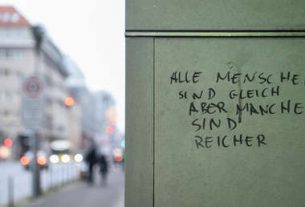 ALLE MENSCHE
SIND GLEICH
ABER MANCHE
SIND
REICHER